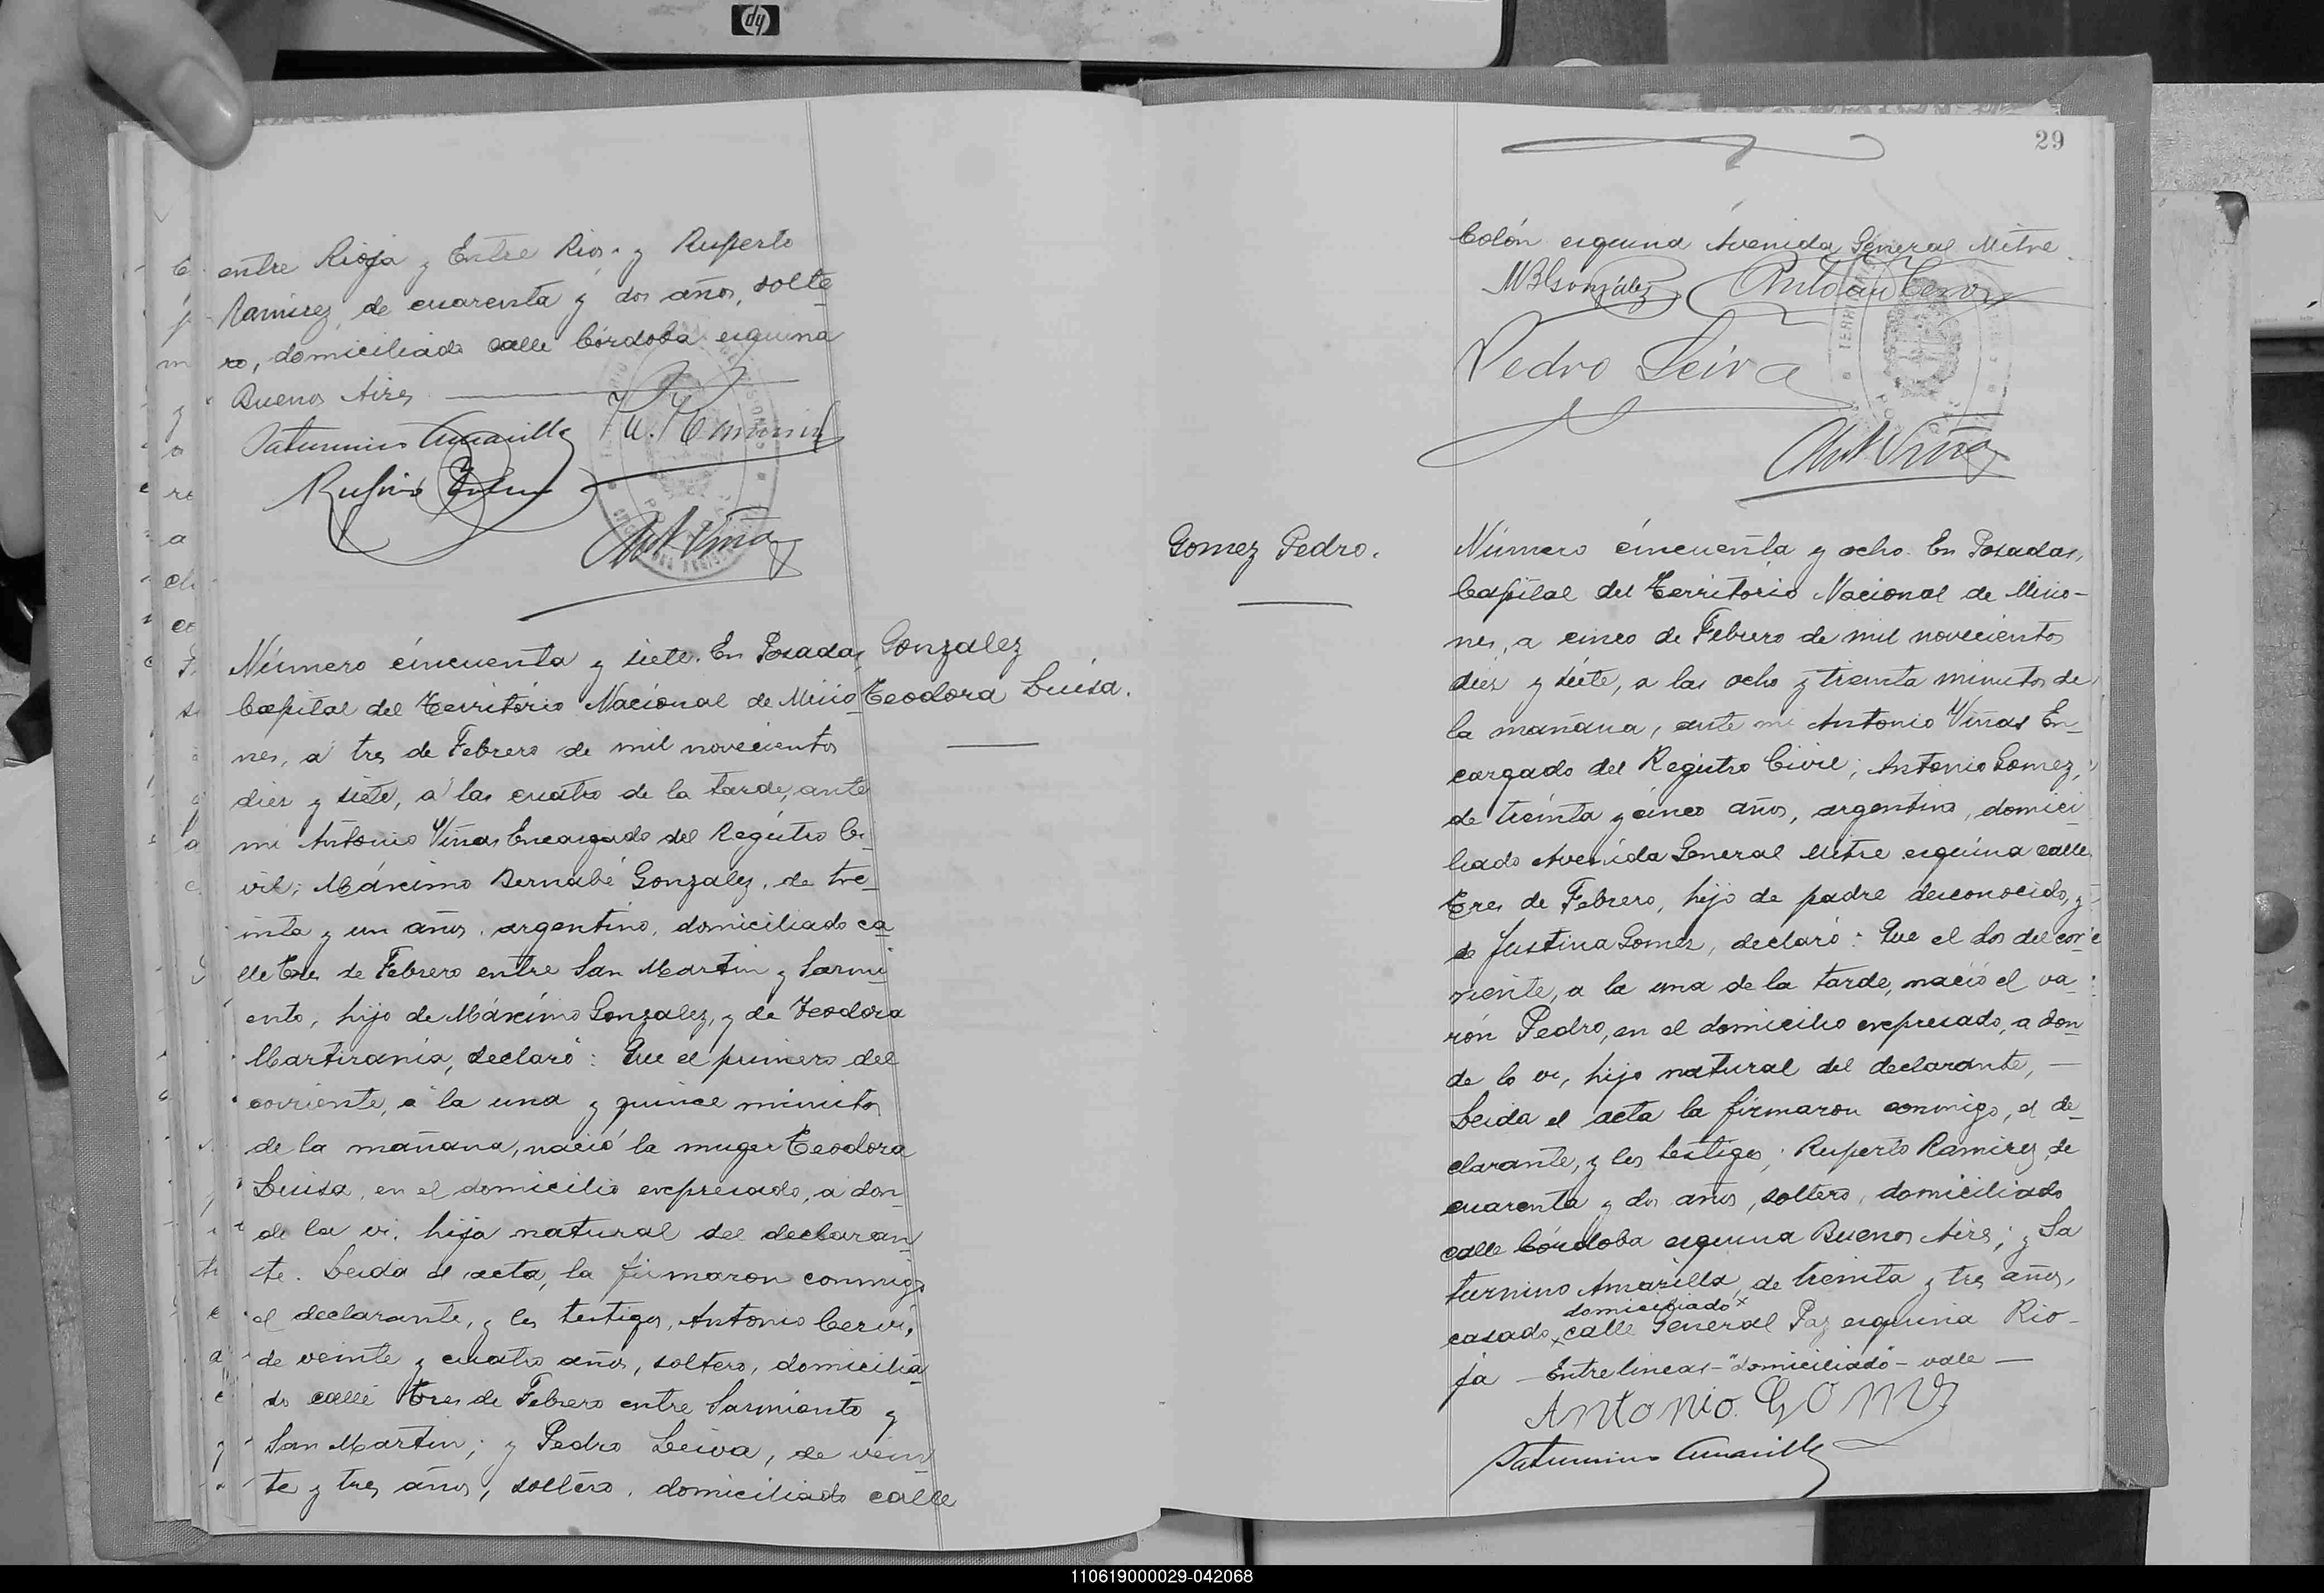 hp
entre Rioja y Entre Rios. y Ruperto
Ramirez, de cuarenta y dos años, solte-
ro, domiciliado calle Córdoba esquina
Buenos Aires
Saturnino Amarilla
Número cincuenta y siete. En Posadas
Capital del Territorio Nacional de Misio-
nes, a tres de Febrero de mil novecientos
diez y siete, a las cuatro de la tarde, ante
mi Antonio Viñas Encargado del Registro Ci-
vil; Máximo Bernabé Gonzalez, de tre-
inta y un años, argentino, domiciliado ca-
lle Tres de Febrero entre San Martin y Sarmi-
ento, hijo de Máximo Gonzalez, y de Teodora
Martirania, declaró: Que el primero del
corriente, a la una y quince minutos
de la mañana, nació la muger Teodora
Luisa, en el domicilio expresado, a don-
de la vi, hija natural del declaran-
te. Leida el acta, la firmaron conmigo
el declarante, y los testigos, Antonio Cervi,
de veinte y cuatro años, soltero, domicilia-
do calle Tres de Febrero entre Sarmiento y
San Martin; y Pedro Leiva, de vein-
te y tres años, soltero, domiciliado calle
Gonzalez
Teodora Luisa.
29
Colón esquina Avenida General Mitre.
MBGonzález
Pedro Leiva
Ant Viñas
Gomez Pedro.
Número cincuenta y ocho. En Posadas,
Capital del Territorio Nacional de Misio-
nes, a cinco de Febrero de mil novecientos
diez y siete, a las ocho y treinta minutos de
la mañana, ante mi Antonio Viñas En-
cargado del Registro Civil; Antonio Gomez,
de treinta y cinco años, argentino, domici-
liado Avenida General Mitre esquina calle
Tres de Febrero, hijo de padre desconocido, y
de Justina Gomez, declaró: Que el dos del cor-
riente, a la una de la tarde, nació el va-
rón Pedro, en el domicilio expresado, a don-
de lo vi, hijo natural del declarante, —
Leida el acta la firmaron conmigo, el de-
clarante, y los testigos; Ruperto Ramirez, de
cuarenta y dos años, soltero, domiciliado
calle Córdoba esquina Buenos Aires; y Sa
turnino Amarilla, de treinta y tres años,
domiciliado x
casado, x calle General Paz esquina Rio-
ja — Entre lineas - "domiciliado" - vale —
Antonio Gomez
Saturnino Amarilla
110619000029-042068